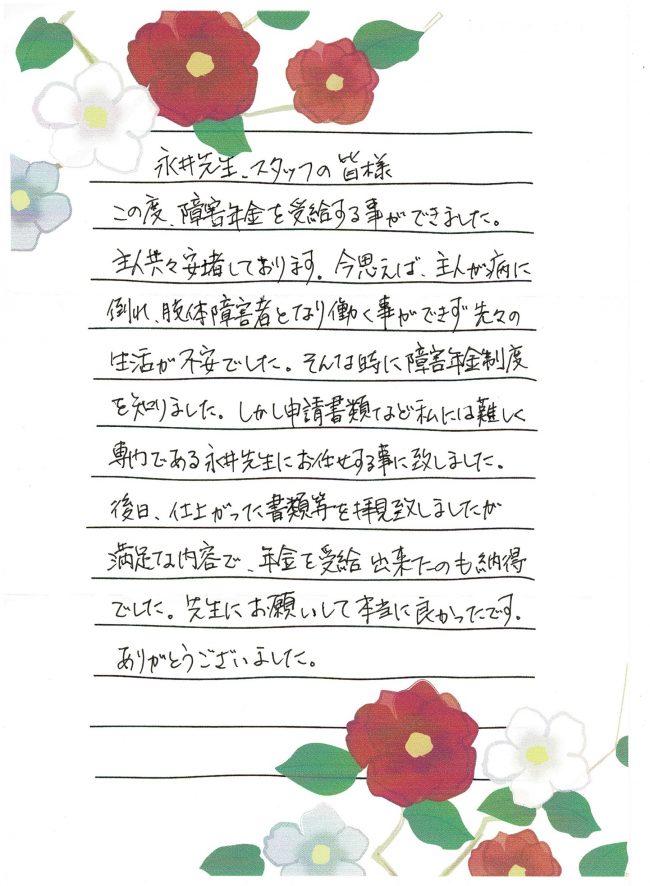 永井先生、スタッフの皆様
この度、障害年金を受給する事ができました。
主人共々安堵しております。今思えば、主人が病に
倒れ、肢体障害者となり働く事ができず先々の
生活が不安でした。そんな時に障害年金制度
を知りました。しかし申請書類など私には難しく
専門である永井先生にお任せする事に致しました。
後日、仕上がった書類等を拝見致しましたが
満足な内容で、年金を受給出来たのも納得
でした。先生にお願いして本当に良かったです。
ありがとうございました。